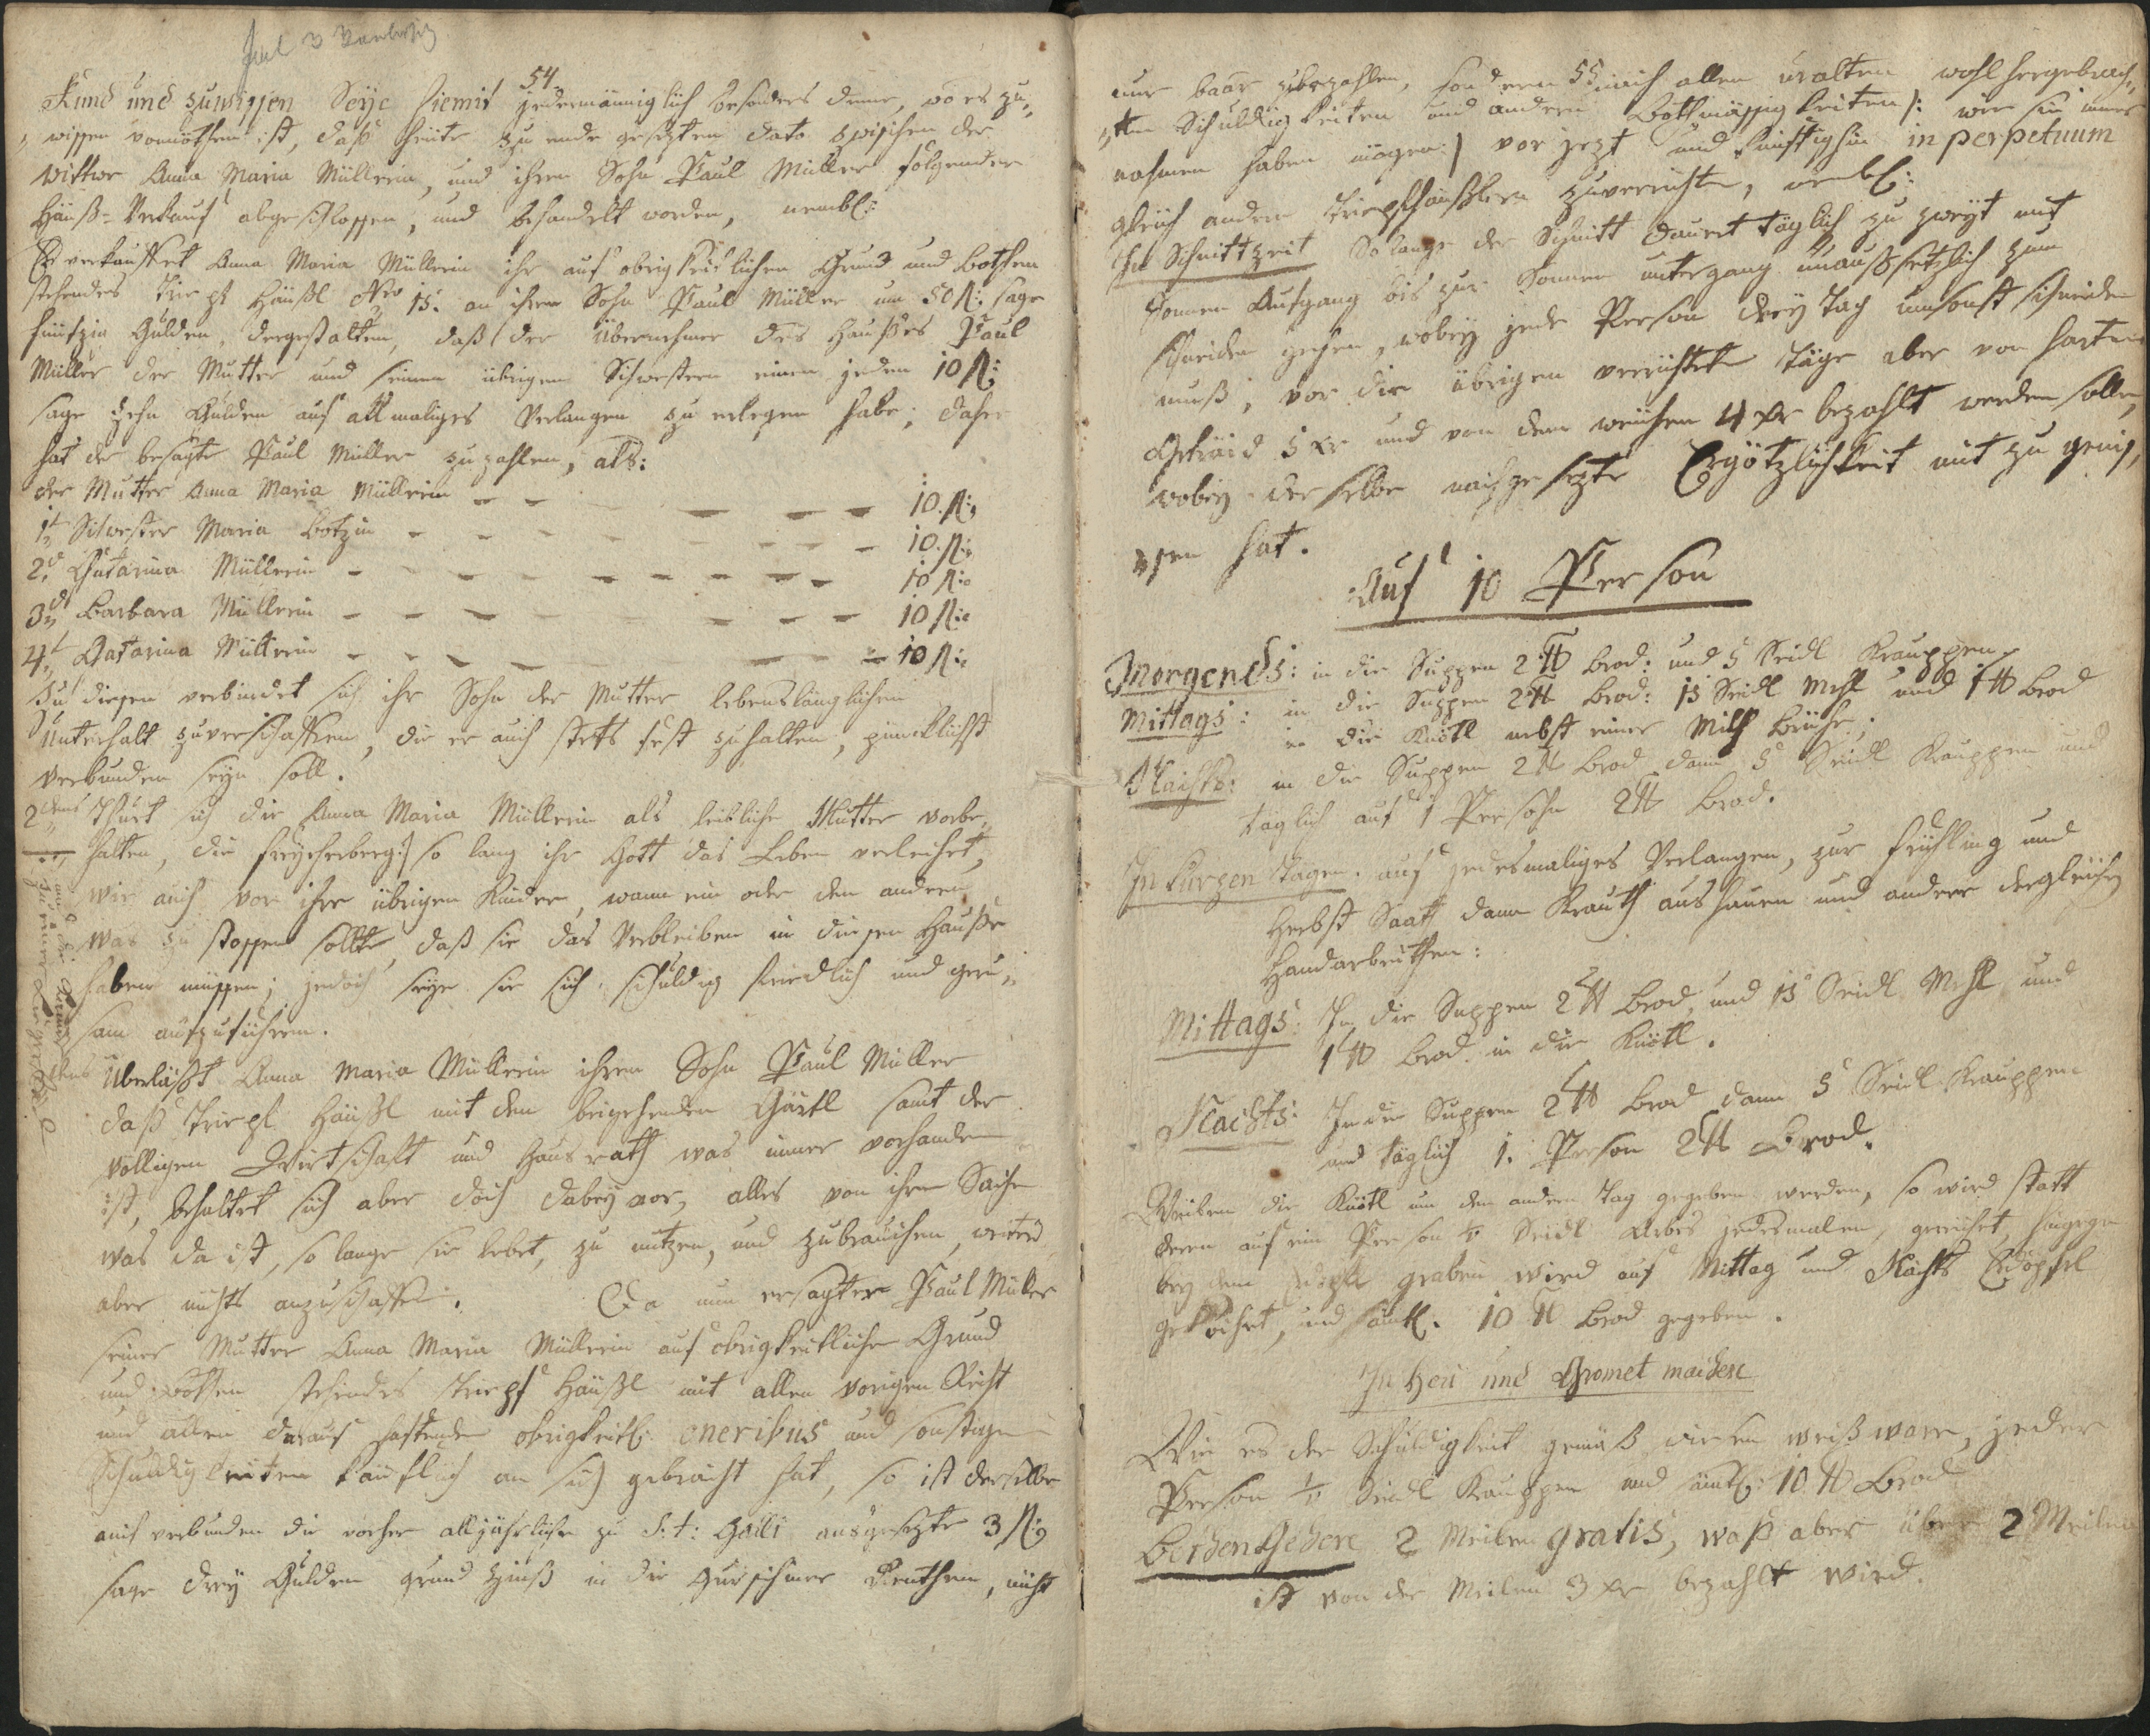 54.
Kund und zuwissen Seye hiemit jedermänniglich besonders denne, wo es zu„
„wissen vonnöthen ist, daß heute zu ende gesezten dato zwischen der
Wittwe Anna Maria Müllerin, und ihren Sohn Paul Müller folgender
Häuß=Verkauf abgeschlossen, und behandelt worden, nembl:
Es verkauffet Anna Maria Müllerin ihr auf obrigkeitlichen Grund und Bothen
stehendes Häußl Nro 15. an ihren Sohn Paul Müller um 50 fl: sage
fünfzig Gulden, dergestalten, daß der Übernehmer des Haußes Paul
Müller der Mutter und seinen übrigen Schwestern einen jeden 10 fl:
sage Zehn Gulden auf allmaliges Verlangen zu erlegen habe; daher
hat der besagte Paul Müller zu zahlen, als:
der Mutter Anna Maria Müllerin - - - - - 10 fl:
1t Schwester Maria Botzin - - - - - 10 fl:
2d Catarina Müllerin - - - - - 10 fl:
3d Barbara Müllerin - - - - - 10 fl:
4t Catarina Müllerin - - - - - 10 fl:
Zu diesen verbindet sich ihr Sohn der Mutter lebenslänglichen
Unterhalt zuverschaffen, die er auch stets fest zu halten, pincktlichst
verbunden seyn soll.
2tens Thuet sich die Anna Maria Müllerin als leibliche Mutter vorbe„
halten, die freyeherberg:/ so lang ihr Gott das Leben verleihet,
wie auch vor ihre übrigen Kinder, wann ein oder den andern
was zu stossen sollte, daß sie das Verbleiben in diesen Hauße
haben müssen; jedoch seye sie sich schuldig friedlich und geru„
sam aufzuführen.
Überläßt Anna Maria Müllerin ihren Sohn Paul Müller
daß Häußl mit dem beigehenden Gärtl samt der
völligen Wirtschaft und Hausrath was immer vorhanden
ist, behaltet sich aber doch dabey vor, alles von ihrer Sache
was da ist, so lange sie lebet, zu nutzen, und zubrauchen, weiters
aber nichts anzuschaffen. Da nun ersagter Paul Müller
seiner Mutter Anna Maria Müllerin auf obrigkeitlichen Grund
und Bothen stehendes Häußl mit allen vorigen Recht
und allen darauf haftenden obrigkeitl: oneribus und sonstigen
Schuldigkeiten käuflich an sich gebracht hat, so ist derselbe
auch verbunden die vorher alljährliche zu S:t: Galli ausgesezte 3 fl:
sage drey Gulden grund Zinß in die Renthen, nicht
nur baar zubezahlen, sondern 55 nach allen uralten wohl hergebrach„
„ten Schuldigkeiten und andern Bothmässigkeiten /: wie sie immer
nahmen haben mögen :/ vor jezt und künftighin in perpetuum
gleich andern zuverrichten, nembl:
In Schnittzeit So lange der Schnitt dauret täglich zu zweyt mit
Sonnen Aufgang bis zur Sonnen untergang unaußsetzlich zum
schneiden gehen, wobey jede Person drey Tag umsonst schneiden
muß, vor die übrigen verrichteten Täge aber von harten
Getraid 5 xr und von dem weichen 4 xr bezahlt werden solle,
wobey derselbe nachgesezte Ergötzlichkeit mit zu genis„
„sen hat.
Auf 10 Person
Morgends: in die Suppen 2 ℔ Brod: und 5 Seidl Krauppen.
Mittags: in die Suppen 2 ℔ Brod: 15 Seidl Mehl und 1 ℔ Brod
in die Knötl nebst einer Milch Brühe;
Nachts: in die Suppen 2 ℔ Brod dann 5 Seidl Krauppen und
täglich auf 1 Persohn 2 ℔ Brod.
In kurzen Tägen. auf jedesmaliges Verlangen, zur Frühling und
Herbst Saath dann Krauth aushauen und andere dergleichen
Handarbeithen:
Mittags: In die Suppen 2 ℔ Brod, und 15 Seidl Mehl und
1 ℔ Brod in die Knötl.
Nachts: In die Suppen 2 ℔ Brod dann 5 Seidl Krauppen
und täglich 1. Person 2 ℔ Brod.
Weilen die Knötl um den andern Tag gegeben werden, so wird statt
deren auf ein Person Seidl Arbes jedesmalen gereichet, hingegen
bey dem graben wird auf Mittag und Nachts Erdöpfel
gekochet, und sämtl. 10 ℔ Brod gegeben.
In Heu und Gromet machen
Wie es der Schuldigkeit gemäß jeder
Person Seidl Krauppen und sämtl: 10 ℔ Brod
Bothen Gehen 2 Meilen gratis, waß aber über 2 Meilen
ist von der Meilen 3 xr bezahlt wird.